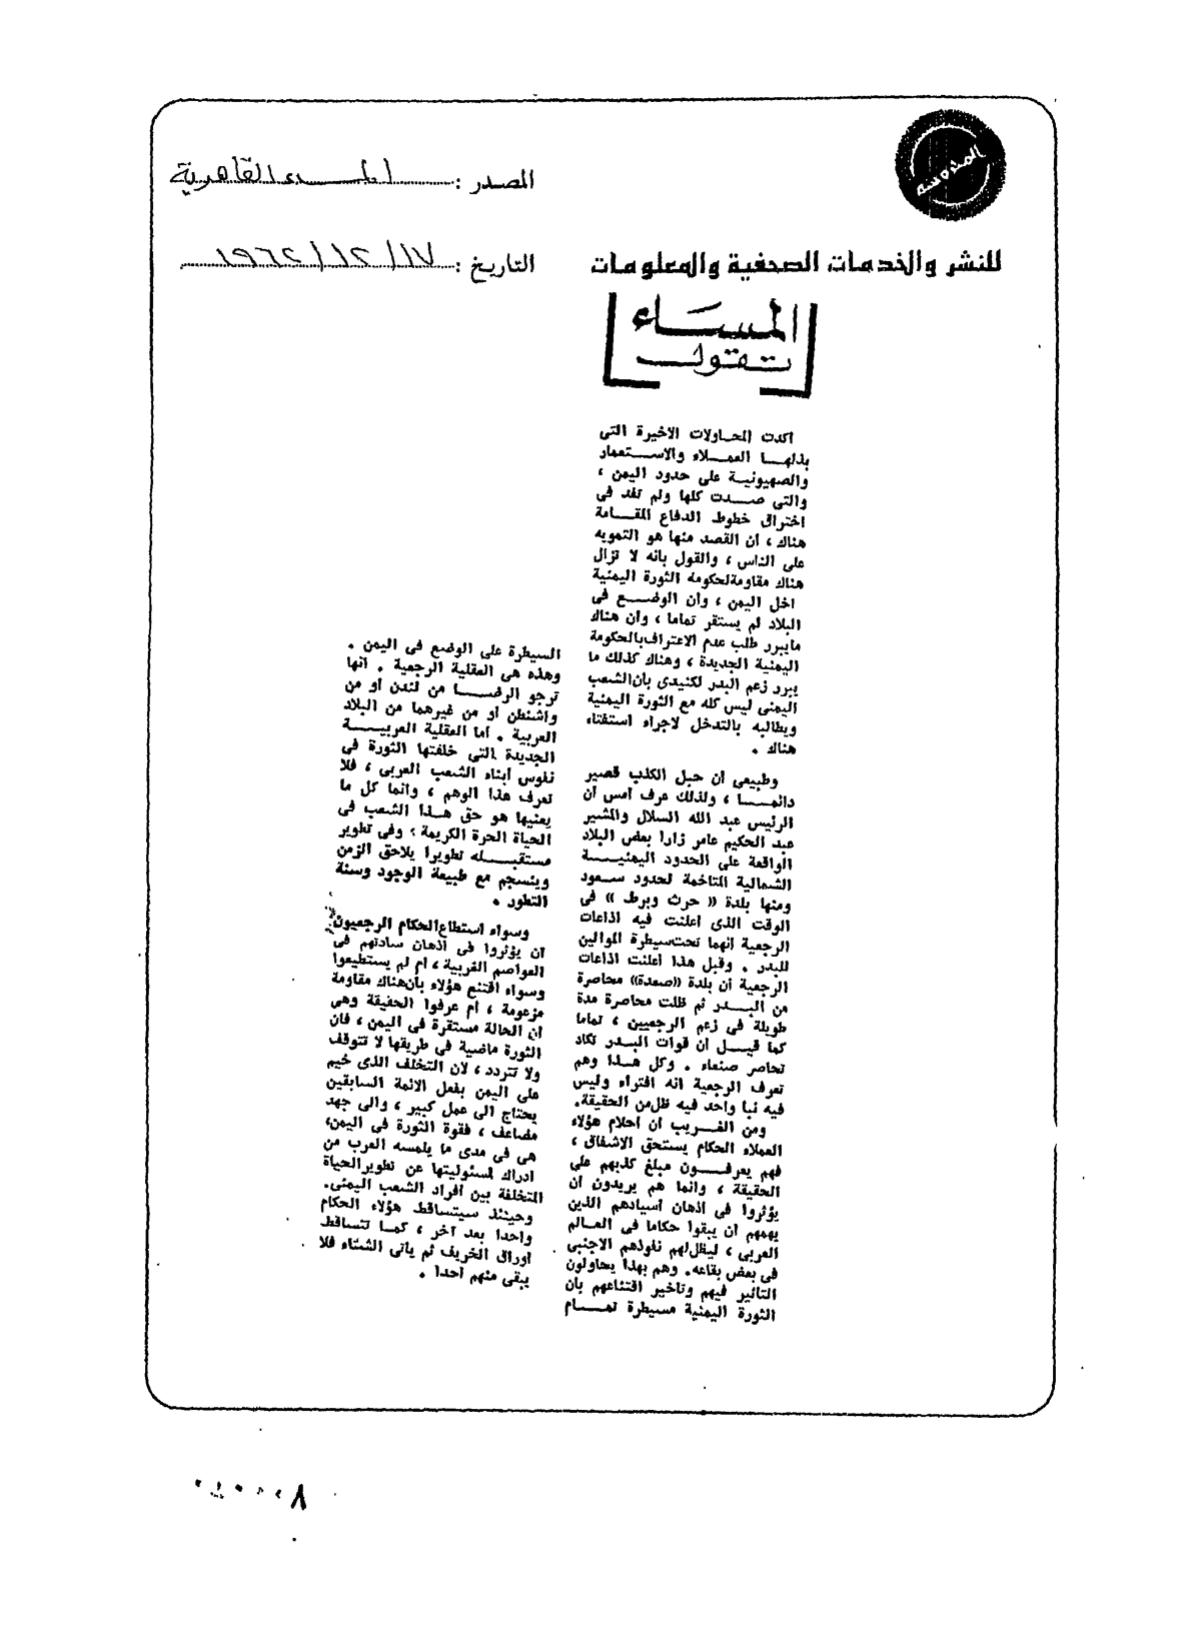 المصدر : المساء القاهرية
التاريخ : ١٧ / ١٢ / ١٩٦٢
للنشر والخدمات الصحفية والمعلومات
المساء
تقول
اكدت المحاولات الاخيرة التى
بذلها العملاء والاستعمار
والصهيونية على حدود اليمن ،
والتى صدت كلها ولم تفد فى
اختراق خطوط الدفاع المقامة
هناك ، ان القصد منها هو التمويه
على الناس ، والقول بانه لا تزال
هناك مقاومة لحكومة الثورة اليمنية
اخل اليمن ، وان الوضع فى
البلاد لم يستقر تماما ، وان هناك
مايبرر طلب عدم الاعتراف بالحكومة
اليمنية الجديدة ، وهناك كذلك ما
يبرر زعم البدر لكنيدى بان الشعب
اليمنى ليس كله مع الثورة اليمنية
ويطالبه بالتدخل لاجراء استفتاء
هناك .
وطبيعى ان حبل الكذب قصير
دائما ، ولذلك عرف امس ان
الرئيس عبد الله السلال والمشير
عبد الحكيم عامر زارا بعض البلاد
الواقعة على الحدود اليمنية
الشمالية المتاخمة لحدود سعود
ومنها بلدة « حرث وبرط » فى
الوقت الذى اعلنت فيه اذاعات
الرجعية انهما تحت سيطرة الموالين
للبدر . وقبل هذا اعلنت اذاعات
الرجعية ان بلدة «صعدة» محاصرة
من البدر ثم ظلت محاصرة مدة
طويلة فى زعم الرجعيين ، تماما
كما قيل ان قوات البدر تكاد
تحاصر صنعاء . وكل هذا وهم
تعرف الرجعية انه افتراء وليس
فيه نبا واحد فيه ظل من الحقيقة.
ومن الغريب ان احلام هؤلاء
العملاء الحكام يستحق الاشفاق ،
فهم يعرفون مبلغ كذبهم على
الحقيقة ، وانما هم يريدون ان
يؤثروا فى اذهان اسيادهم الذين
يهمهم ان يبقوا حكاما فى العالم
العربى ، ليظل لهم نفوذهم الاجنبى
فى بعض بقاعه. وهم بهذا يحاولون
التاثير فيهم وتاخير اقتناعهم بان
الثورة اليمنية مسيطرة تمام
السيطرة على الوضع فى اليمن .
وهذه هى العقلية الرجعية . انها
ترجو الرضا من لندن او من
واشنطن او من غيرهما من البلاد
العربية . اما العقلية العربية
الجديدة التى خلقتها الثورة فى
نفوس ابناء الشعب العربى ، فلا
تعرف هذا الوهم ، وانما كل ما
يعنيها هو حق هذا الشعب فى
الحياة الحرة الكريمة ، وفى تطوير
مستقبله تطويرا يلاحق الزمن
وينسجم مع طبيعة الوجود وسنة
التطور .
وسواء استطاع الحكام الرجعيون
ان يؤثروا فى اذهان سادتهم فى
العواصم الغربية ، ام لم يستطيعوا
وسواء اقتنع هؤلاء بان هناك مقاومة
مزعومة ، ام عرفوا الحقيقة وهى
ان الحالة مستقرة فى اليمن ، فان
الثورة ماضية فى طريقها لا تتوقف
ولا تتردد ، لان التخلف الذى خيم
على اليمن بفعل الائمة السابقين
يحتاج الى عمل كبير ، والى جهد
مضاعف ، فقوة الثورة فى اليمن،
هى فى مدى ما يلمسه العرب من
ادراك لمسئوليتها عن تطوير الحياة
المتخلفة بين افراد الشعب اليمنى.
وحينئذ سيتساقط هؤلاء الحكام
واحدا بعد آخر ، كما تتساقط
اوراق الخريف ثم ياتى الشتاء فلا
يبقى منهم احدا .